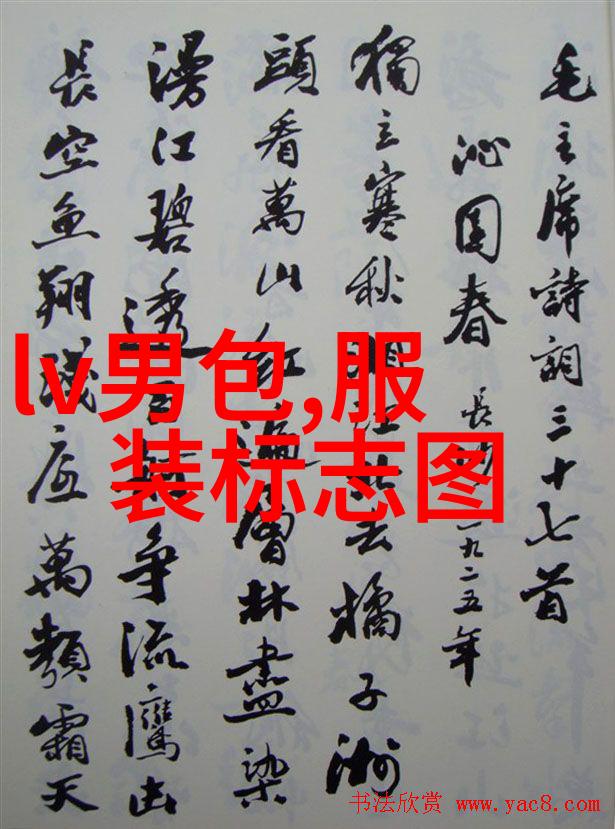 毛主席詩詞三十七首
沁園春 長沙 一九二五年
獨立寒秋湘江北去橘子洲
頭看萬山紅遍層林盡染
漫江碧透百舸争流鷹击
長空魚翔淺底萬類霜天
lv男包,服
装标志图
书法欣赏 www.yac8.com